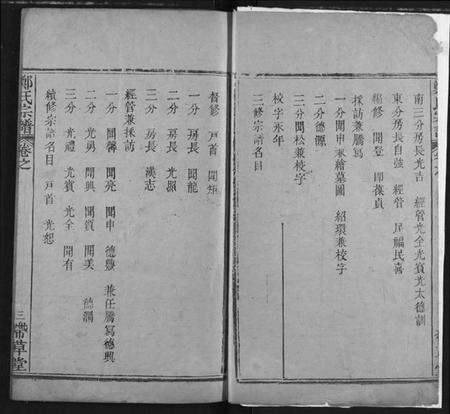 南三分房長光吉 經管光全光賓光太德訓
東分房長自強 經管 房福民喜
編修 開登 即像貞
採訪兼騰寫
一分開申兼繪墓圖 紹環兼校字
二分德源
三分開松兼校字
校字永年
三修宗譜名目
督修 戶首 開炬
一分 房長 開龍
二分 房長 光顯
三分 房長 漢志
經管兼採訪
一分 開馨 開亮 開申 德發 兼任騰寫德興
二分 光勇 開興 開質 開美 德潤
三分 光禮 光賓 光全 開有
續修宗譜名目 戶首 光恕
鄭氏宗譜 卷之
三
帶草堂